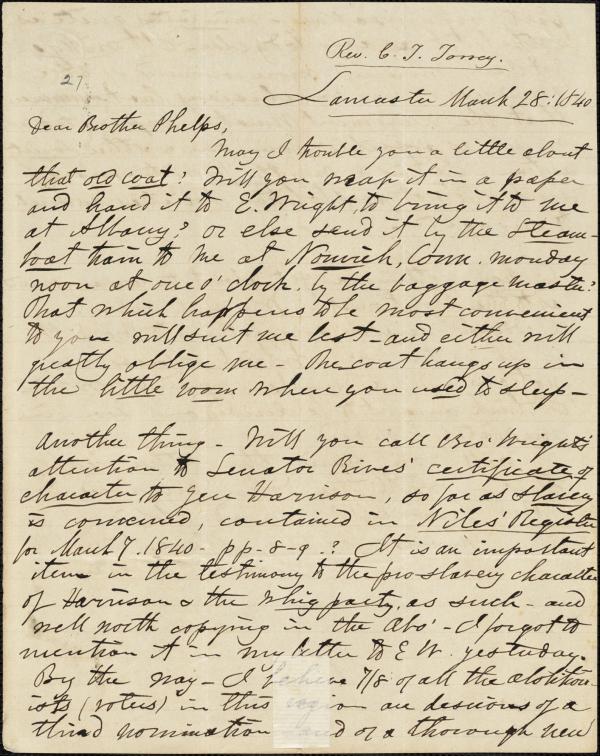 27
Rev. C. T. Torrey.
Lancaster March 28: 1840
Dear Brother Phelps,
May I trouble you a little about
that old coat? Will you wrap it in a paper
and hand it to E. Wright, to bring it to me
at Albany? or else send it by the Steam-
boat train to me at Norwich, Conn. monday
noon at one o'clock, by the baggage master?
That which happens to be most convenient
to you will suit me best - and either will
greatly oblige me - The coat hangs up in
the little room where you used to sleep -
Another thing - Will you call Bro' Wright's
attention to Senator Rives' certificate of
character to Gen Harrison, so far as slavery
is concerned, contained in Niles' Register
for March 7. 1840 - pp - 8-9.? It is an important
item in the testimony to the pro-slavery character
of Harrison & the whig party, as such - and
well worth copying in the Abo' - I forgot to
mention it in my letter to E W. yesterday.
By the way - I believe 7/8 of all the abolition-
ists (voters) in this region are desirous of a
third nomination and of a thorough new